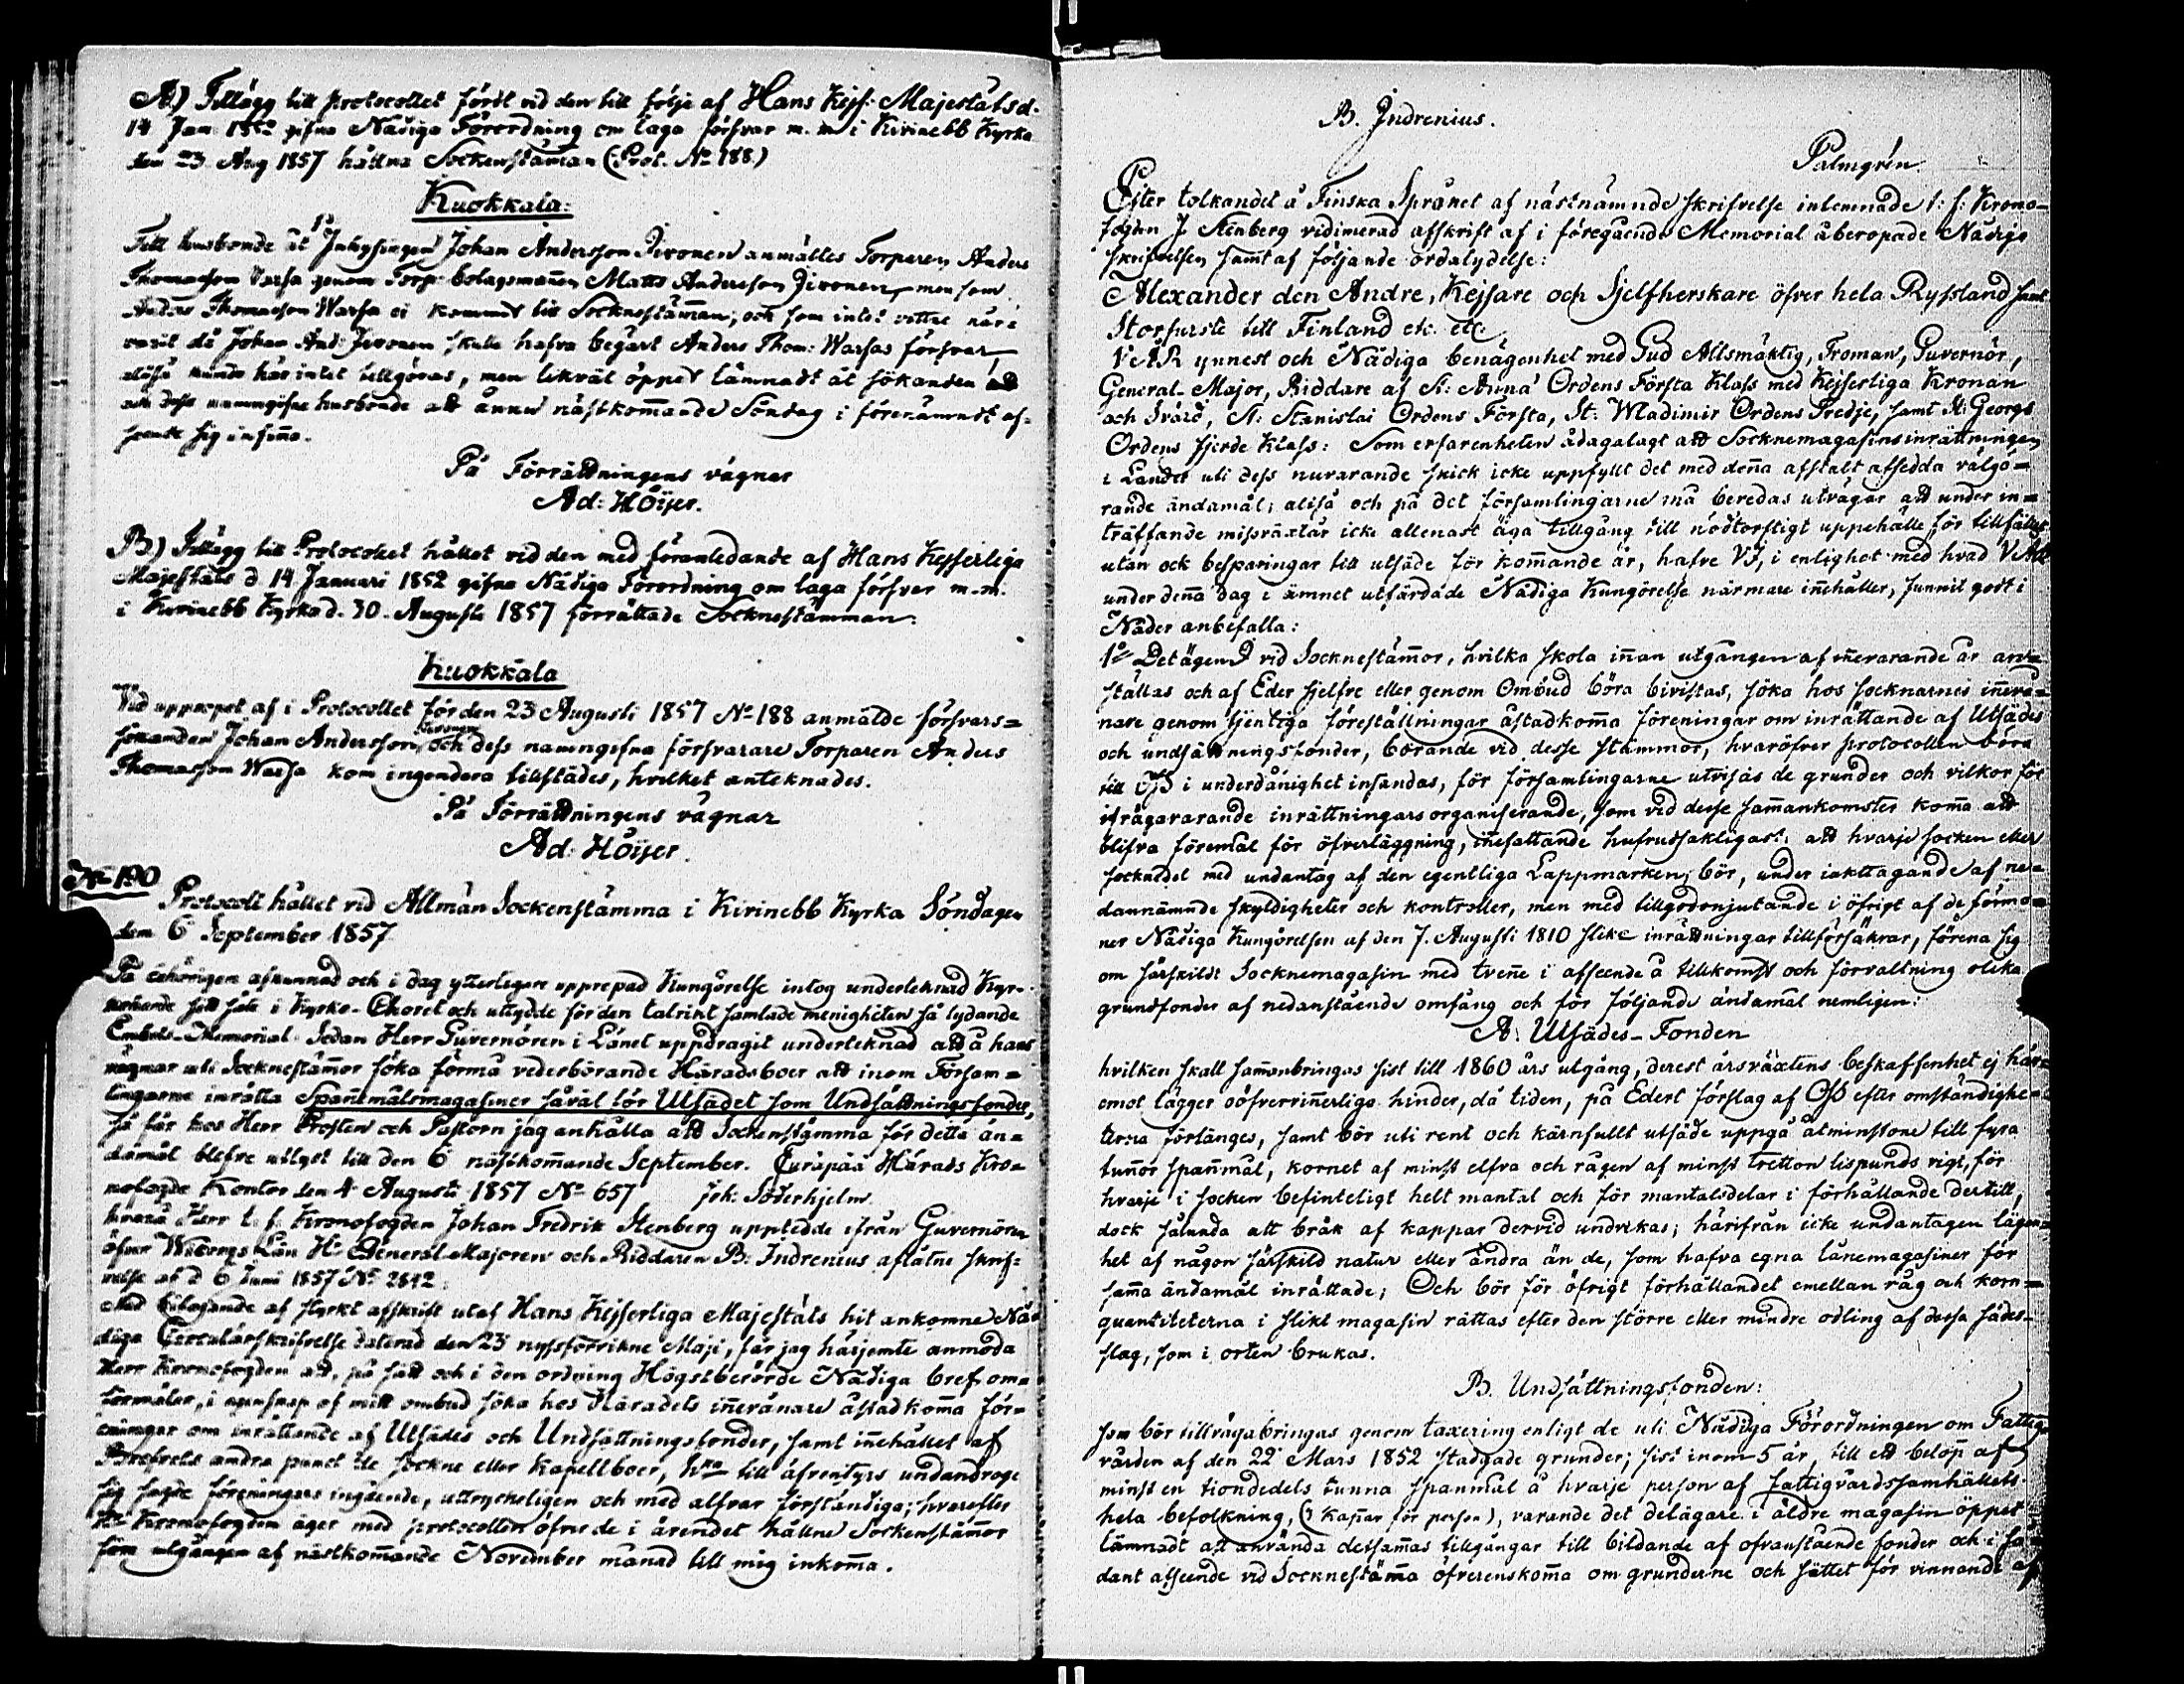 A.) Tillägg till Protocollet fördt vid den till följe af Hans Kejs: Majestäts d.
14 Jan: 1852 gifna Nådiga Förordning om laga försvar m. m. i Kivinebb Kyrka
den 23 Aug 1857 hållna Sockenstäman (Prot. No 188.)
Kuokkala:
Till husbonde åt Inhysingen Johan Andersson Jivonen anmältes Torparen Anders
Thomasson Warsa genom Torp: bolagsmanen Matts Andersson Jivonen, men som
Anders Thomasson Warsa ei kommit till Socknestämman, och som intet vittne när-
varit då Johan And: Jivonen skulle hafva begärt Anders Thom: Warsas försvar,
altså kunde här intet tillgöras, men likväl öppet lämnadt åt sökanden
och dess namngifne husbonde att ännu nästkommande Söndag i förenämndt af-
seende sig infinna.
På Förrättningens vägnar
Ad: Höijer.
B.) Tillägg till Protocollet hållet vid den med föranledande af Hans Kejserliga
Majestäts d. 14 Januari 1852 gifna Nådiga Förordning om laga försvar m.m.
i Kivinebb Kyrka d. 30. Augusti 1857 förrättade Socknestämman.
Kuokkala
Vid uppropet af i Protocollet för den 23 Augusti 1857 No 188 anmälde försvars=
sökanden Johan Andersson Jivonen och dess namngifna försvarare Torparen Anders
Thomasson Warsa kom ingendera tillstädes, hvilket anteknades.
På Förrättningens vägnar
Ad: Höijer.
No 190
Protocoll hållet vid Allmän Sockenstämma i Kivinebb Kyrka Söndagen
den 6 September 1857
På behörigen afkunnad och i dag ytterligare upprepad Kungörelse intog underteknad Kyr-
koherde sitt säte i Kyrko-Choret och uttydde för den talrikt samlade menigheten så lydande
Embets-Memorial: Sedan Herr Guvernören i Länet uppdragit underteknad att å hans
vägnar uti Socknestämor söka förmå vederbörande Häradsboer att inom Försam=
lingarne inrätta Spanmålsmagasiner såväl för Utsädet som Undsättningsfonder,
så får hos Herr Prosten och Pastorn jag anhålla att Sockenstämma för detta än=
damål blefve utlyst till den 6 nästkommande September. Euräpää Härads Kro=
nofogde Kontor den 4 Augusti 1857 No 657 Joh: Söderhjelm.
Herr t. f. Kronofogden Johan Fredrik Stenberg upptedde ifrån Guvernören
öfver Wiborgs Län Hr General-Majoren och Riddaren B: Indrenius aflåtne skrif=
velse af d 6 Juni 1857 No 2842:
Med bilagande af styrkt afskrift utaf Hans Kejserliga Majestäts hit ankomne Nå-
diga Circulärskrifvelse daterad den 23 nyssförvikne Maji, får jag härjemte anmoda
Herr Kronofogden att, på sätt och i den ordning Högstberörde Nådiga bref om=
förmäler, i egenskap af mitt ombud söka hos Häradets inevånare åstadkoma för=
eningar om inrättande af Utsädes och Undsättningsfonder, samt inehållet af
Brefvets andra punct de sockne eller kapellboer, hka till äfventyrs undandroge
sig sagde föreningars ingående, uttryckeligen och med alfvar förständiga; hvarefter
Hr Kronofogden äger med protocollen öfver de i ärendet hållne Sockenstämor
före utgången af nästkomande November månad till mig inkomma.
B. Indrenius.
Palmgrén
Efter tolkandet å Finska Språket af nästnämnde skrifvelse inlemnade t: f: Krono-
fogden J Stenberg vidimerad afskrift af i föregående Memorial åberopade Nådiga
skrifvelsen samt af följande ordalydelse:
Alexander den Andre, Kejsare och Sjelfherskare öfver hela Ryssland samt
Storfurste till Finland etc. etc.
VÅR ynnest och Nådiga benägenhet med Gud Allsmäktig, Troman, Guvernör,
General-Major, Riddare af St: Anna Ordens Första Klass med Kejserliga Kronan
och Svärd, St: Stanislai Ordens Första, St: Wladimir Ordens Tredje, samt St: Georgs
Ordens fjerde Klass: Som erfarenheten ådagalagt att Socknemagasinsinrättningen
i Landet uti dess nuvarande skick icke uppfyllt det med dena afstalt afsedda välgö=
rande ändamål; altså och på det församlingarne må beredas utvägar att under in=
träffande missväxtår icke allenast äga tillgång till nödtorftigt uppehälle för tillfället,
utan ock besparingar till utsäde för komande år, hafve VJ, i enlighet med hvad VÅR
under dena dag i ämnet utfärdade Nådiga Kungörelse närmare inehåller, funnit godt i
Nåder anbefalla:
1o Det ägen I vid Socknestämor, hvilka skola inan utgången af inevarande år an=
ställas och af Eder sjelfve eller genom Ombud böra bivistas, söka hos socknarnes inevå=
nare genom tjenliga föreställningar åstadkoma föreningar om inrättande af Utsädes
och undsättningsfonder, börande vid desse stämmor, hvaröfver protocollen böra
till OSS i underdånighet insändas, för församlingarne utvisas de grunder och vilkor för
ifrågavarande inrättningars organiserande, som vid desse samankomster koma att
blifva föremål för öfverläggning, inefattande hufvudsakligast: att hvarje socken eller
socknedel med undantag af den egentliga Lappmarken, bör, under iakttagande af ne=
dannämnde skyldigheter och kontroller, men med tillgodonjutande i öfrigt af de förmå=
ner Nådiga Kungörelsen af den 7. Augusti 1810 slike inrättningar tillförsäkrar, förena sig
om särskildt Socknemagasin med tvene i afseende å tillkomst och förvaltning olika
grundfonder af nedanstående omfång och för följande ändamål nemligen:
A: Utsädes-Fonden
hvilken skall samanbringas sist till 1860 års utgång, derest årsväxtens beskaffenhet ej här=
emot lägger oöfverrinerliga hinder, då tiden, på Edert förslag af OSS efter omständighe=
terna förlänges, samt bör uti rent och kärnfullt utsäde uppgå åtminstone till fyra
tunor spanmål, kornet af minst elfva och rågen af minst tretton lispunds vigt, för
hvarje i socken befinteligt helt mantal och för mantalsdelar i förhållande dertill,
dock sålunda att bråk af kappar dervid undvikas; härifrån icke undantagen lägen=
het af någon särskild natur eller andra än de, som hafva egna lånemagasiner för
sama ändamål inrättade; Och bör för öfrigt förhållandet emellan råg och korn=
quantiteterna i slikt magasin rättas efter den större eller mindre odling af dessa sädes-
slag, som i orten brukas.
B. Undsättningsfonden:
som bör tillvägabringas genom taxering enligt de uti Nådiga Förordningen om Fattig-
vården af den 22 Mars 1852 stadgade grunder; sist inom 5 år, till ett belopp af
minst en tiondedels tunna spanmål å hvarje person af fattigvårdssamhällets
hela befolkning, (3 kapar för person), varande det delägare i äldre magasin öppet
lämnadt att använda dersamas tillgångar till bildande af ofvanstående fonder och i så-
dant afseende vid Socknestäma öfverenskoma om grunderne och sättet för vinnande af